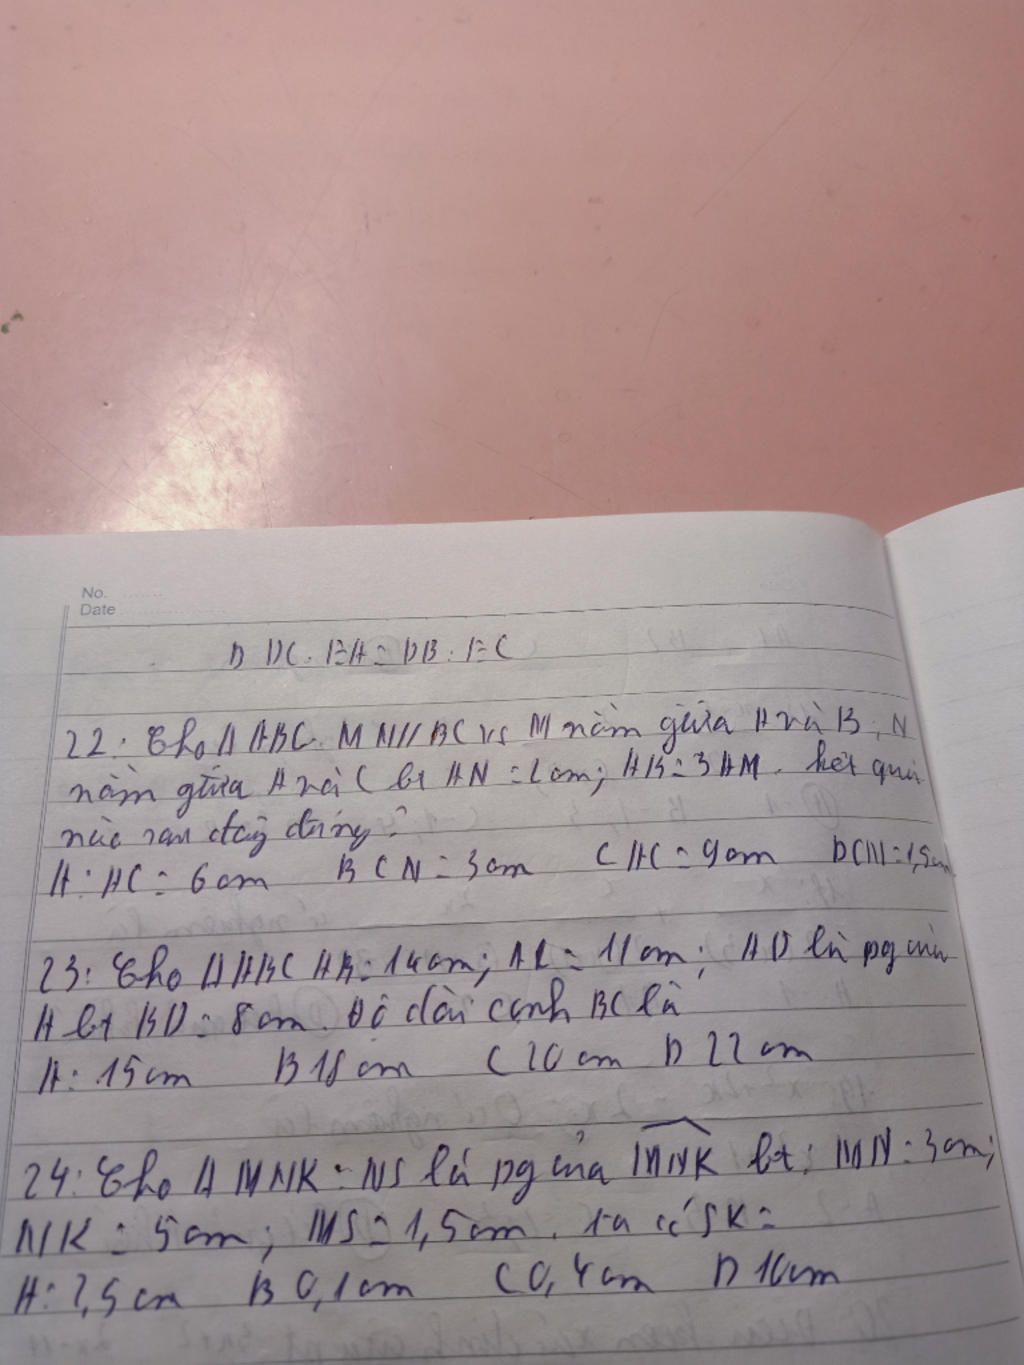 No.
Date
D DC. EA = DB. EC
22: Cho Δ ABC. MN // BC vs M nằm giữa A và B, N
nằm giữa A và C bt AN = 2cm; AB = 3AM. kết quả
nào sau đây đúng?
A: AC = 6cm B CN = 3cm C AC = 9cm D CN = 1,5cm
23: Cho Δ ABC AB = 14cm; AC = 11cm; AD là pg của
A bt BD = 8cm. Độ dài cạnh BC là
A: 15cm B 18cm C 20cm D 22cm
24: Cho Δ MNK: NS là pg của MNK bt: MN = 3cm;
NK = 5cm; MS = 1,5cm. ta có SK =
A: 2,5cm B 0,1cm C 0,4cm D 10cm